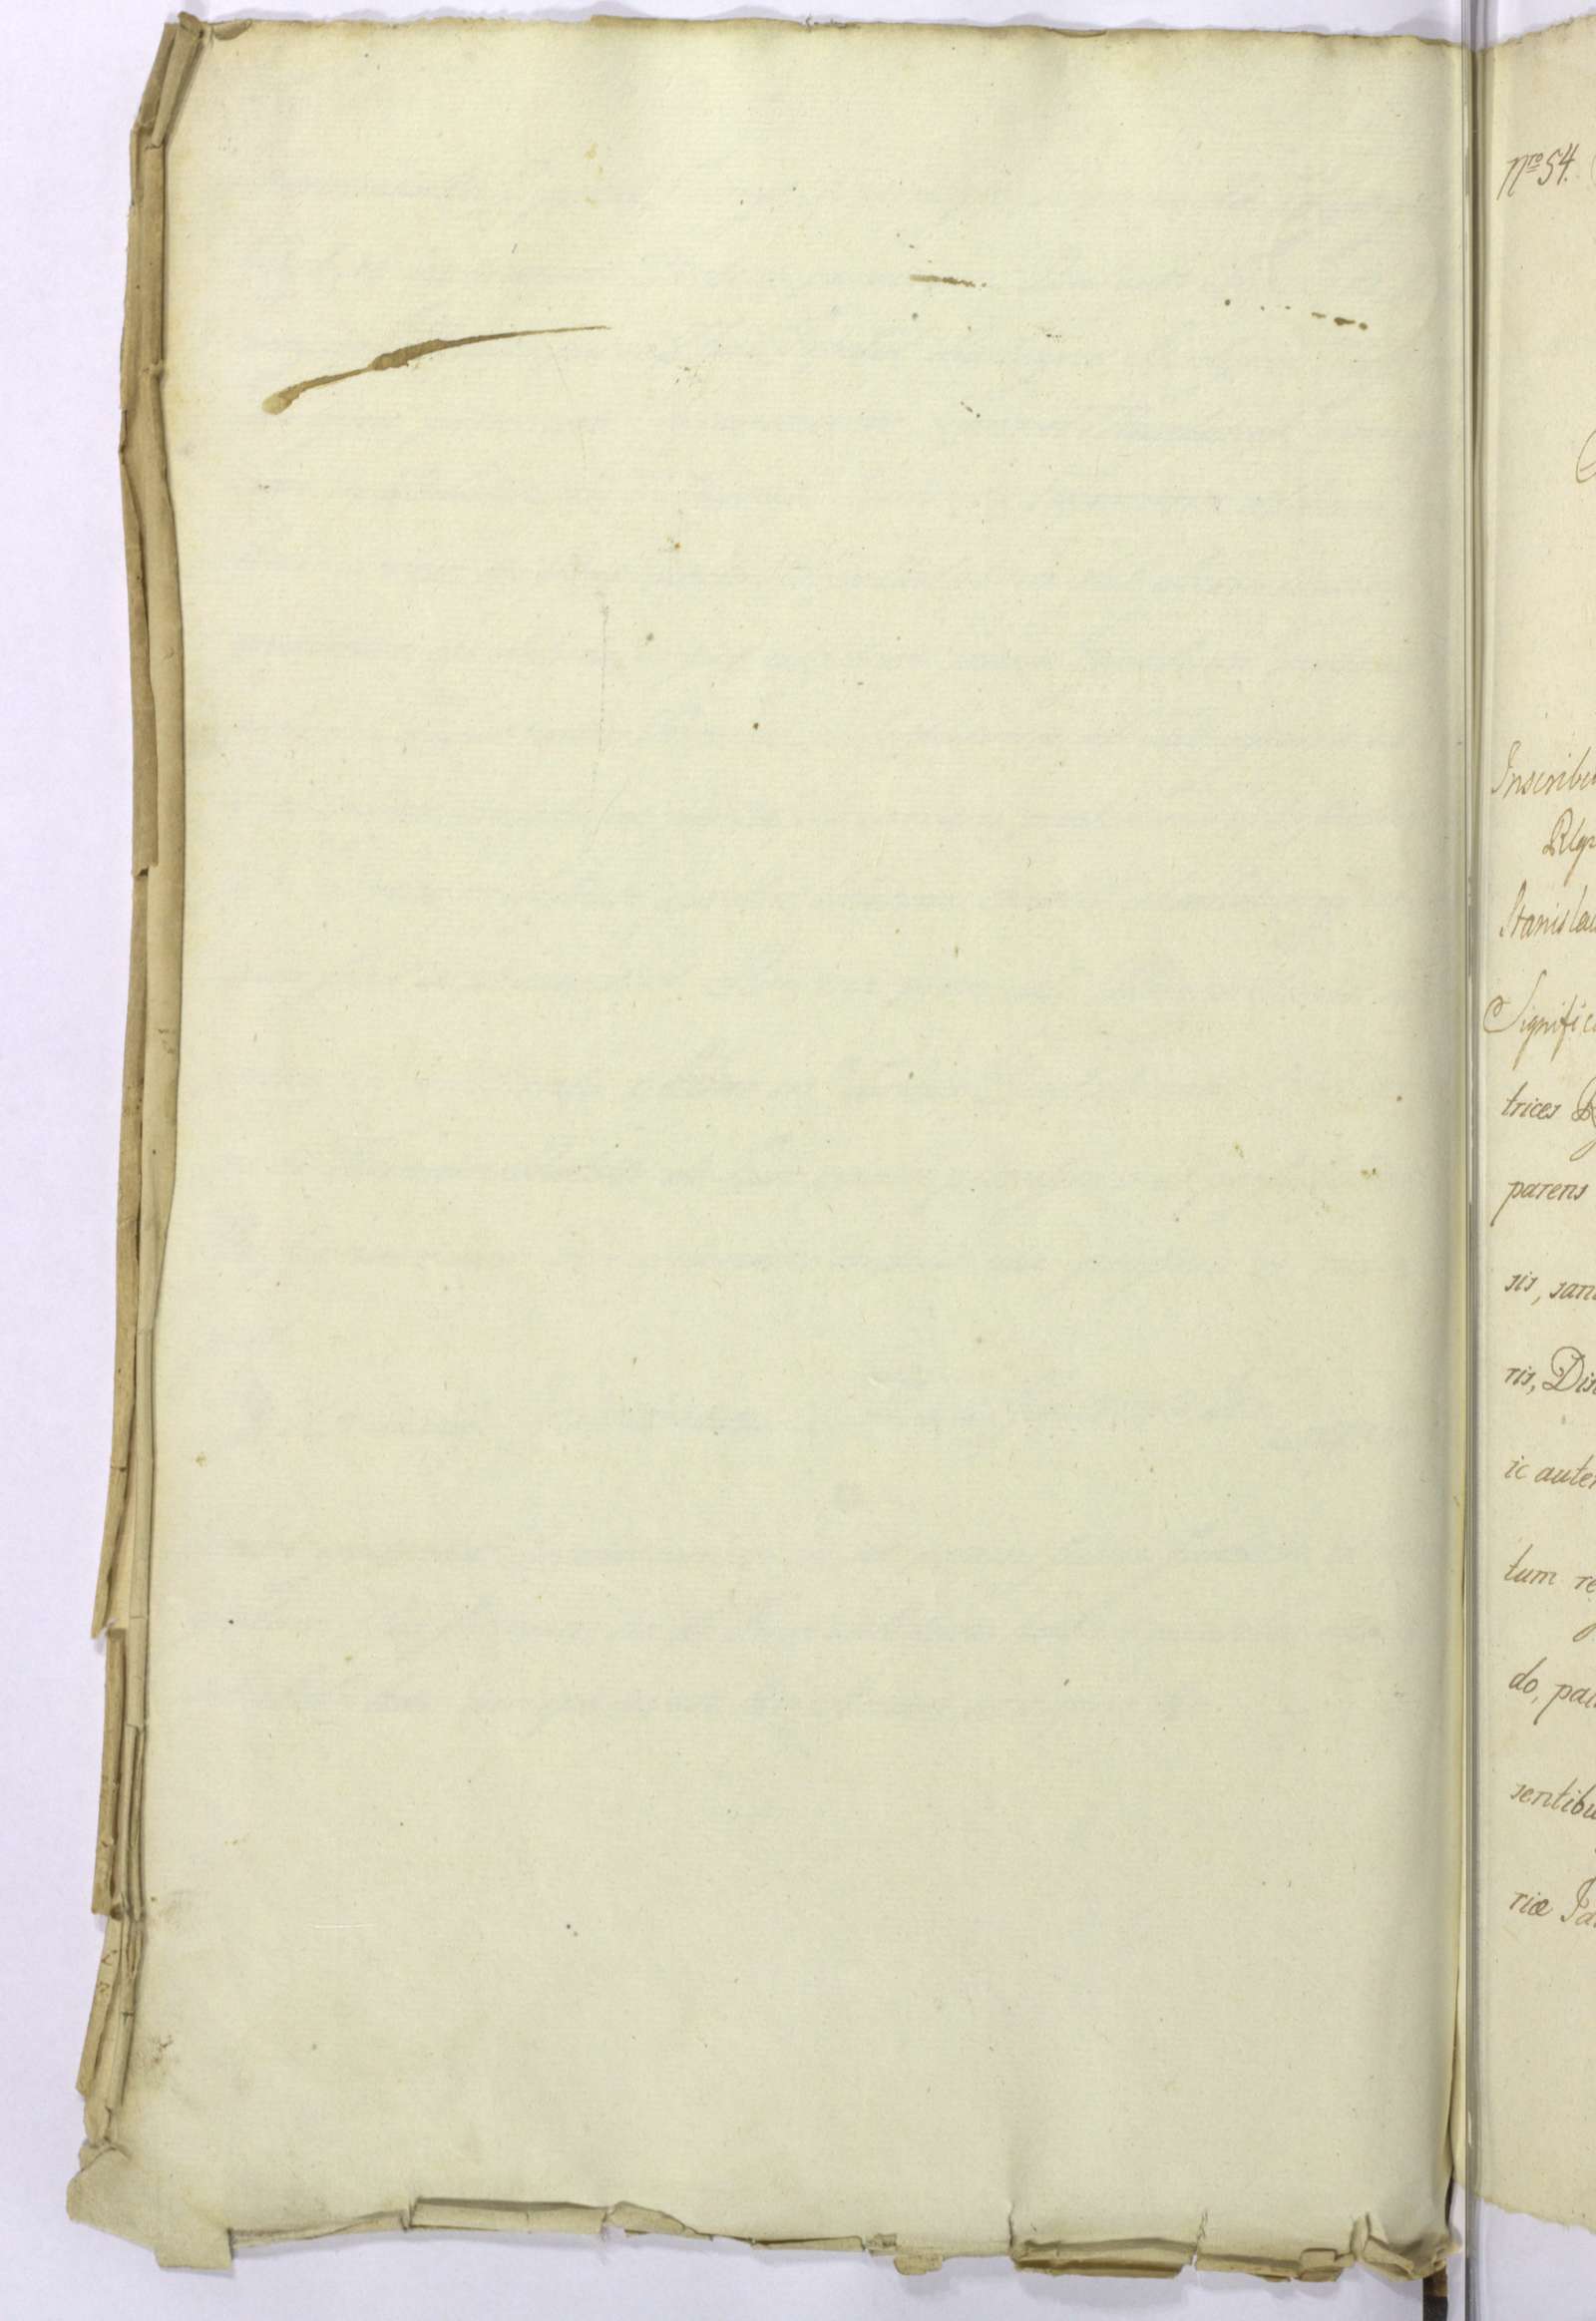 Nro 54.
Inscribu
Stanislau
Significa
trices
parens
sis, san
ris, Dis
ic auter
tum re
do, pa
sentibu
riæ Pa